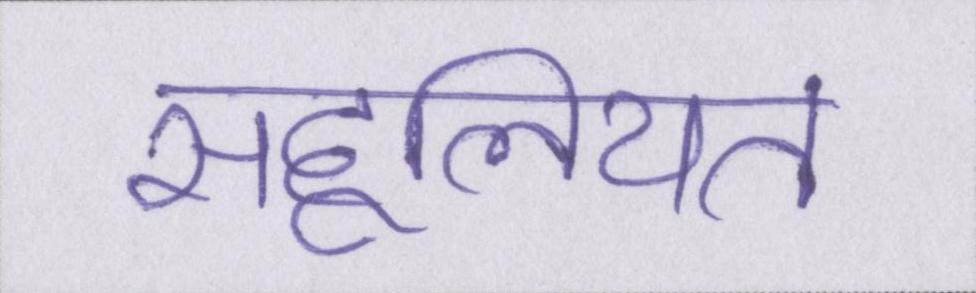 सहूलियत